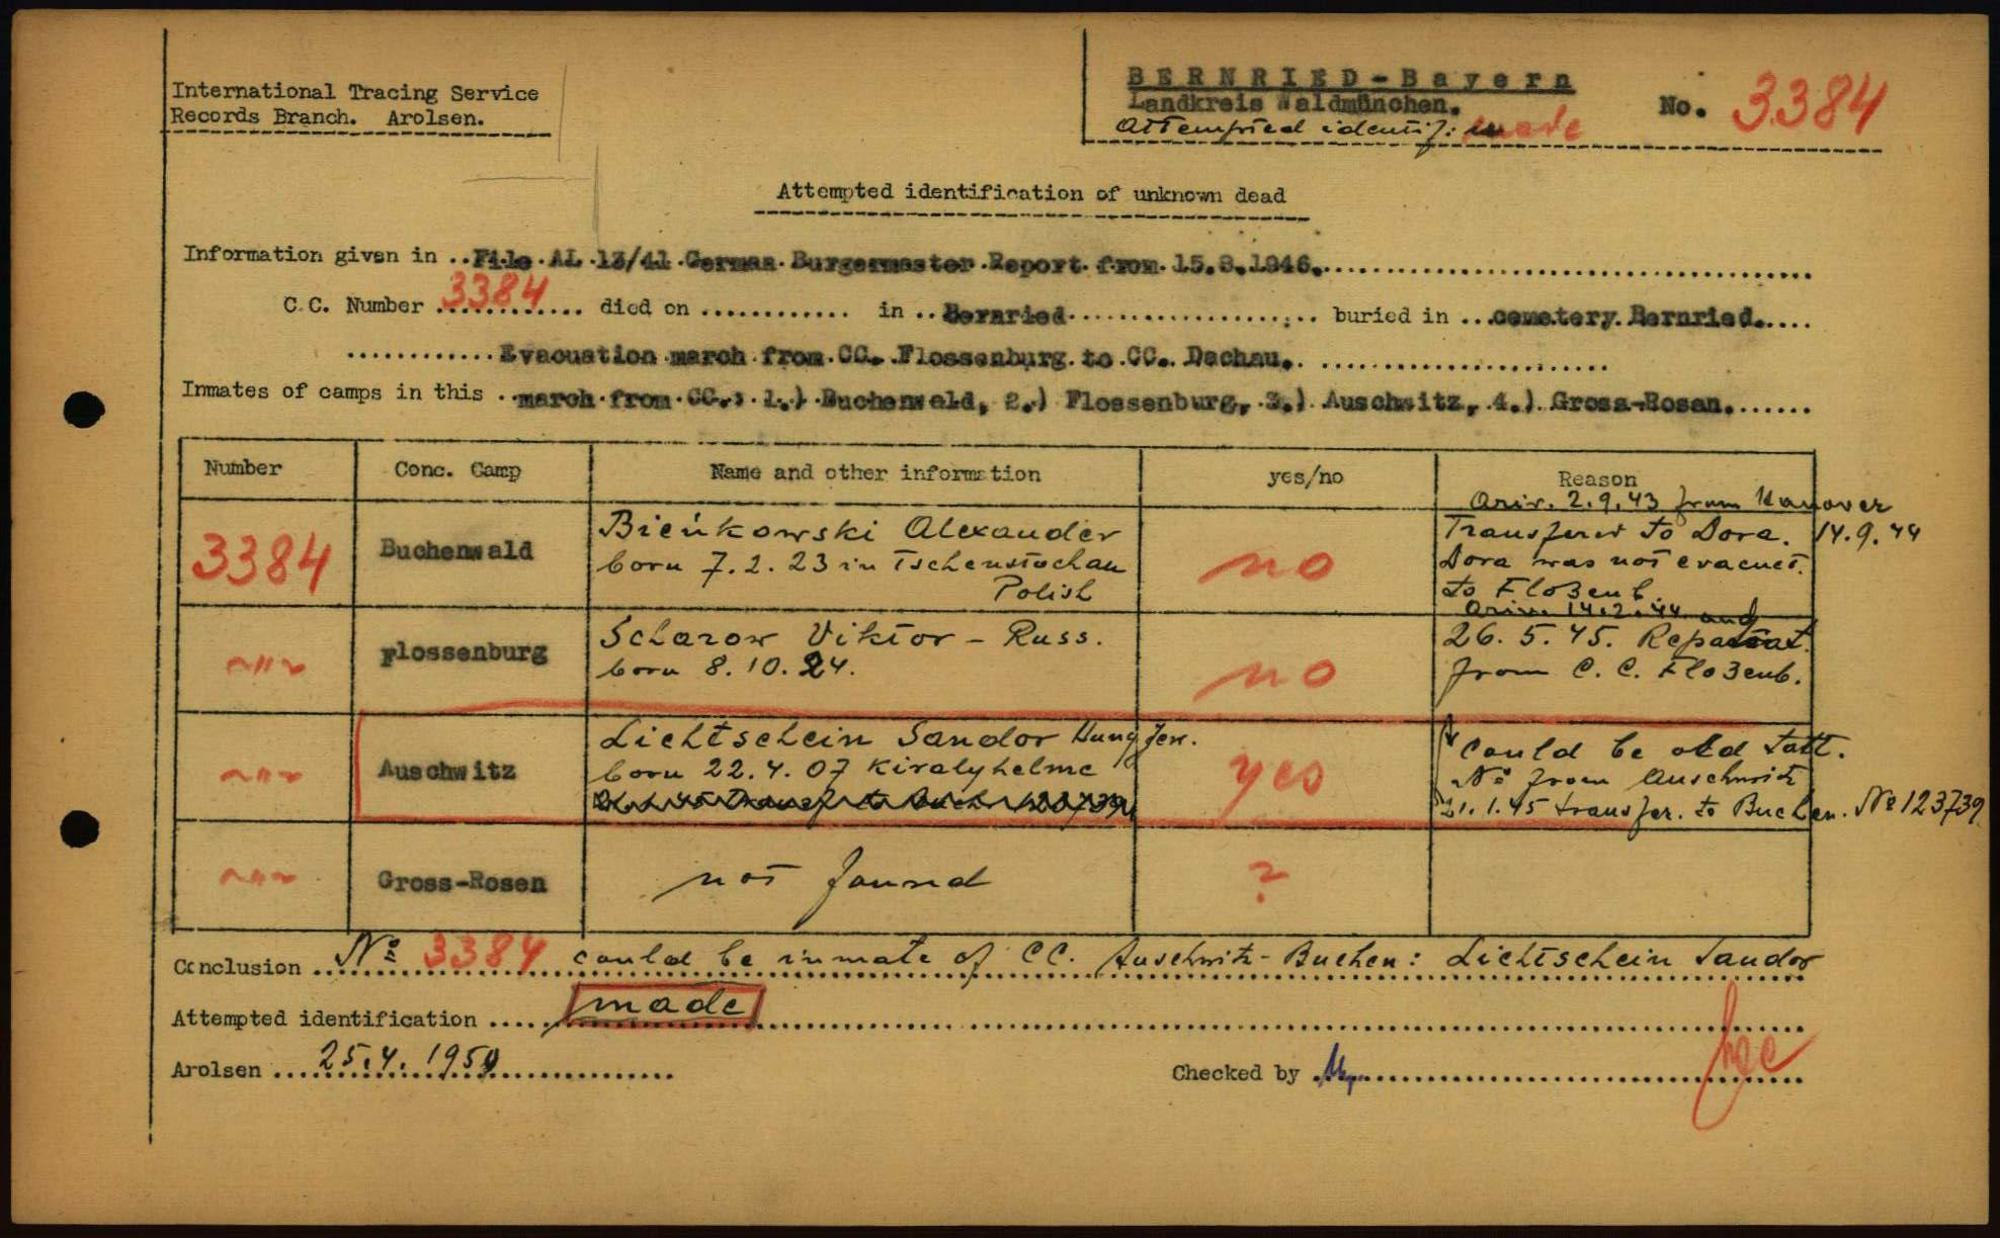 International Tracing Service
Records Branch. Arolsen.
BERNRIED-Bayern
Landkreis Waldmünchen.
Attempted identif: made
No. 3384
Attempted identification of unknown dead
Information given in ..File AL 13/41 German Burgermaster Report from 15.8.1946.
C.C. Number 3384 died on ............ in ..Bernried............ buried in ...cemetery Bernried.....
Evacuation march from CC. Flossenburg to CC. Dachau.
Inmates of camps in this ..march from CC.: 1.) Buchenwald, 2.) Flossenburg, 3.) Auschwitz, 4.) Gross-Rosen.
Number Conc. Camp Name and other information yes/no Reason
3384 Buchenwald
Bieńkowski Alexander
born 7.2.23 in Tschenstochau
Polish
no
Ariv. 2.9.43 from Hanover
Transferet to Dora. 14.9.44
Dora was not evacuet.
to Floßenb.
~"~ Flossenburg
Scharow Viktor - Russ.
born 8.10.24.
no
Ariv. 14.2.44 and
26.5.45. Repatriat.
from C.C. Floßenb.
~"~ Auschwitz
Lichtschein Sandor Hung Jew.
born 22.4.07 Kiralyhelmc
yes
Could be old Tatt.
No from Auschwitz
21.1.45 transfer. to Buchen. No 123739
~"~ Gross-Rosen
not found
?
Conclusion No 3384 could be inmate of CC. Auschwitz-Buchen: Lichtschein Sandor
Attempted identification ..... made
Arolsen ... 25.4.1950
Checked by